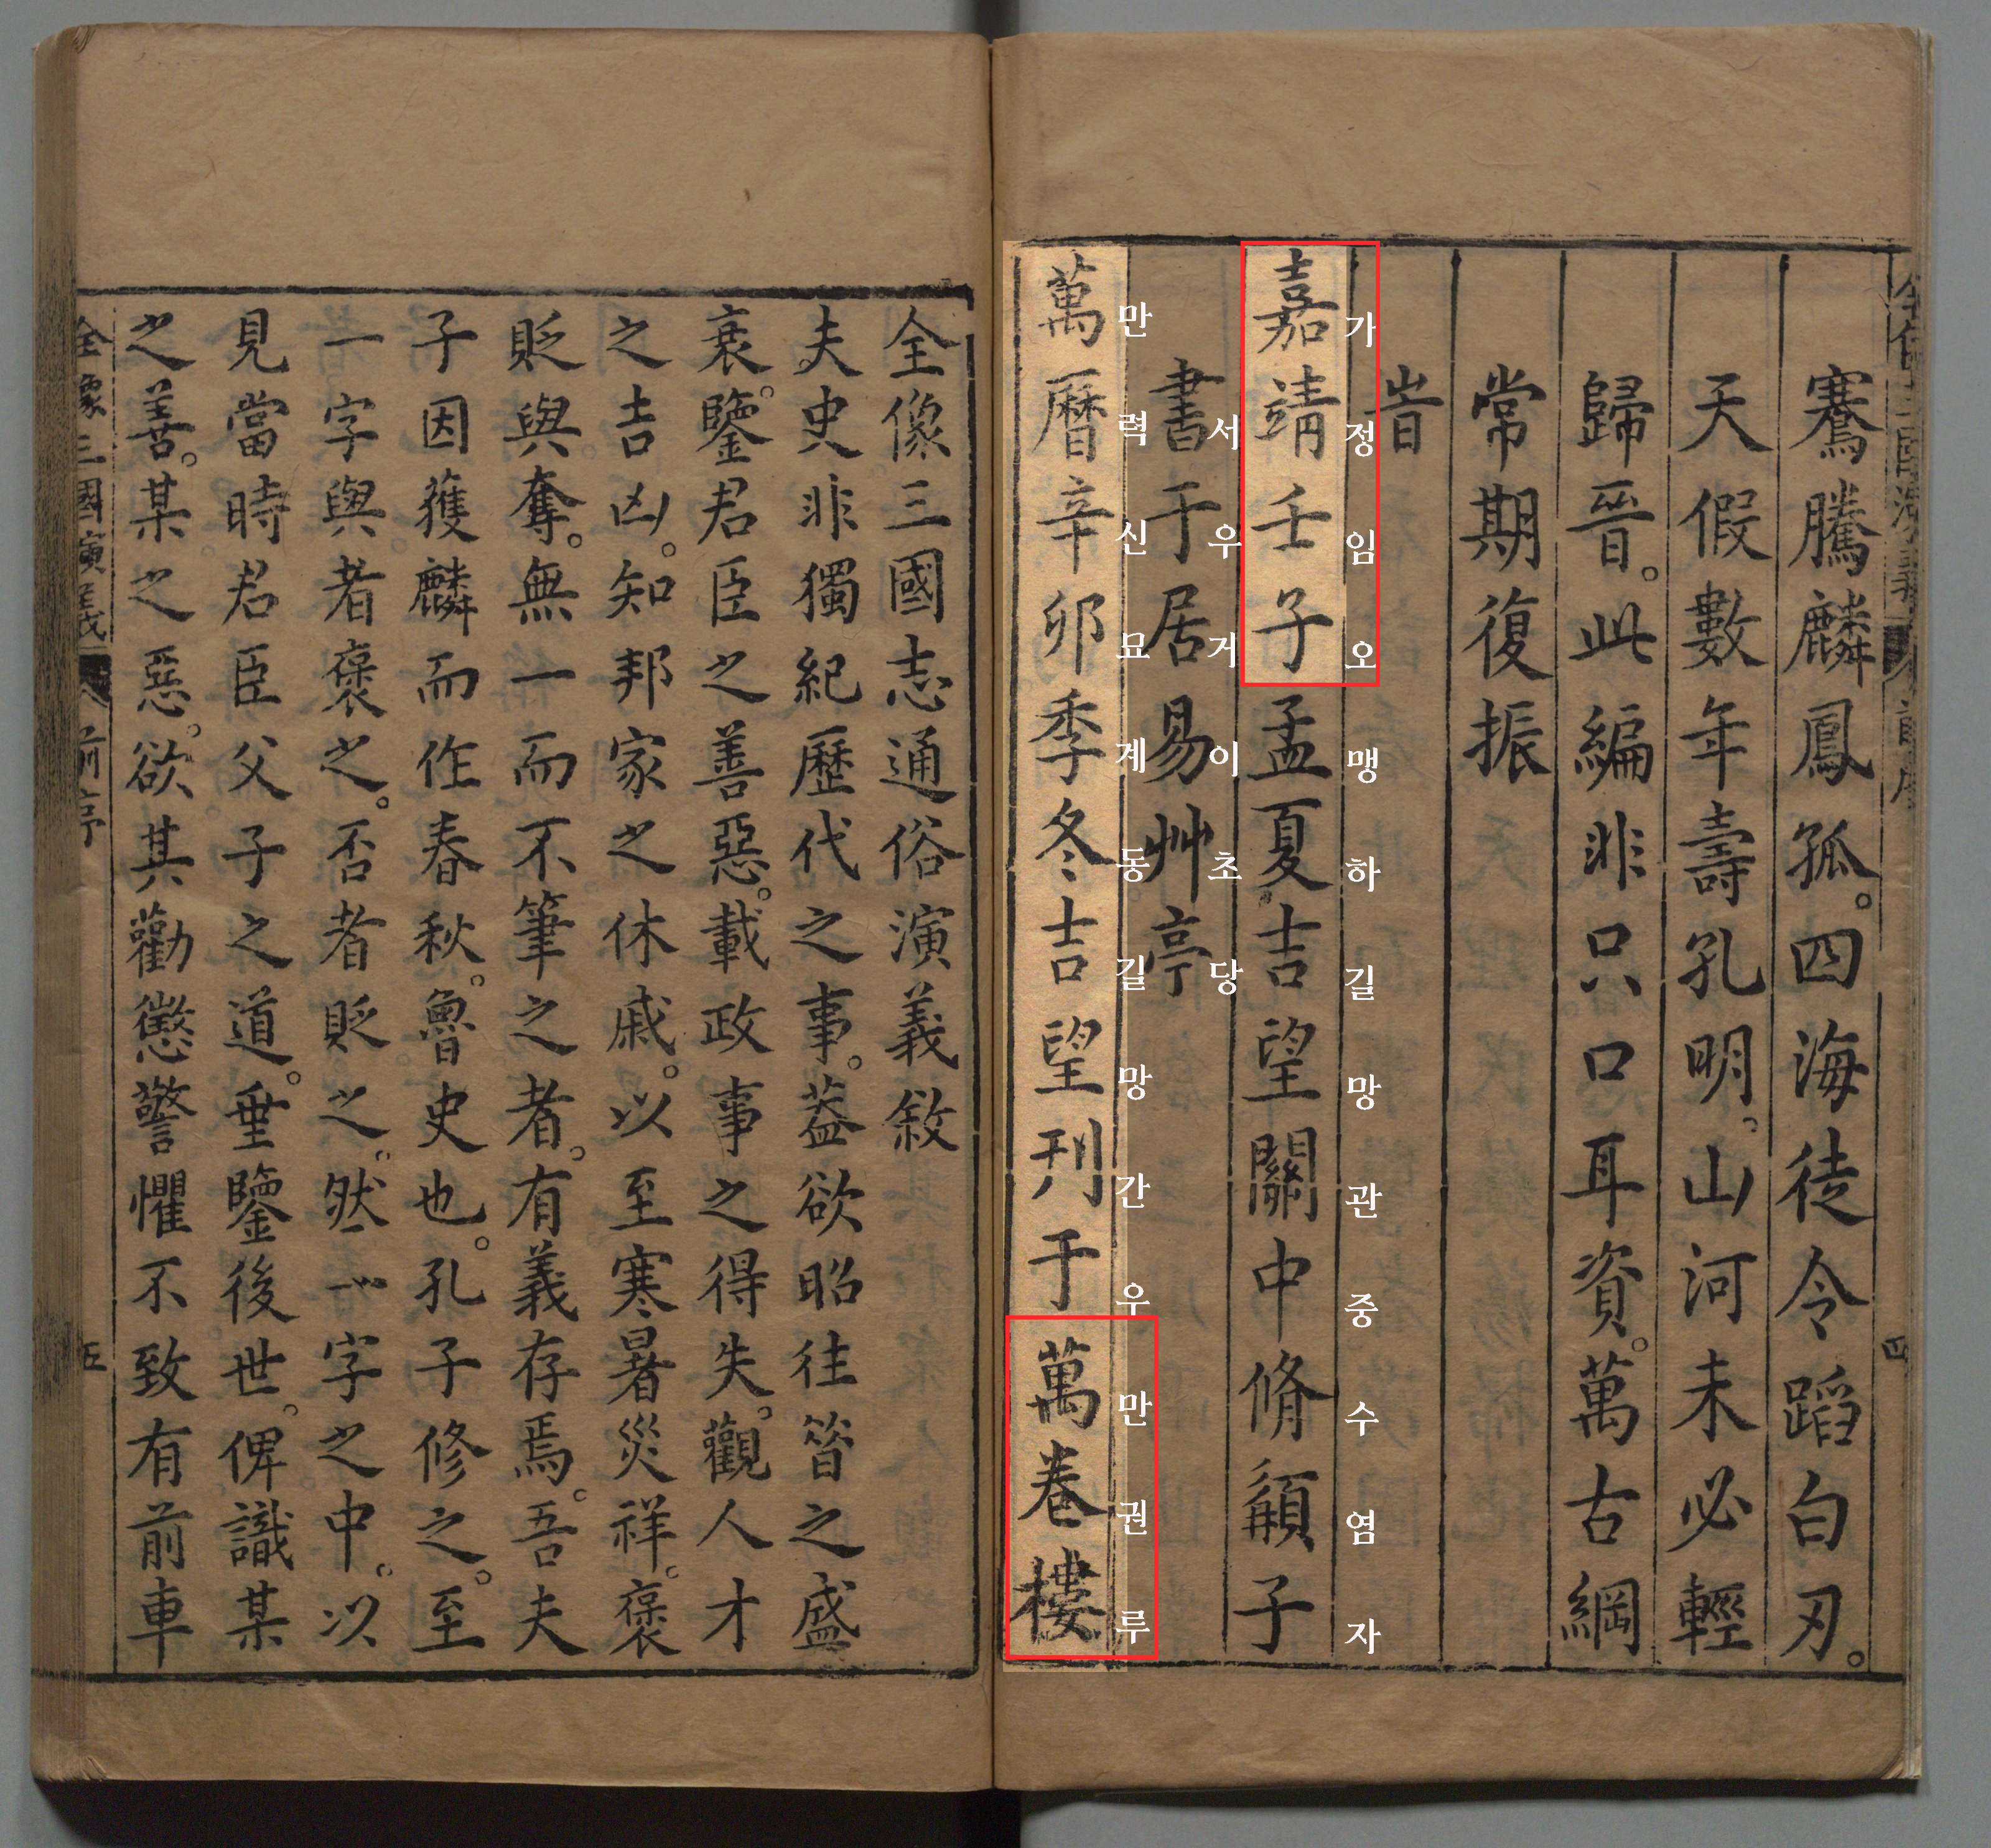 騫騰麟鳳孤。四海徒令蹈白刃。
天假數年壽孔明。山河未必輕
歸晉。此編非只口耳資。萬古綱
常期復振
旹
가정임오맹하길망관중수염자
嘉靖壬子孟夏吉望關中脩子
서우거이초당
書于居易艸亭
만력신묘계동길망간우만권루
萬曆辛卯季冬吉望刊于萬卷樓
全像三國志通俗演義敘
夫史非獨紀歷代之事。葢欲昭往昝之盛
衰。鑒君臣之善惡。載政事之得失。觀人才
之吉凶。知邦家之休戚。以至寒暑災祥。褒
貶與奪。無一而不筆之者。有義存焉。吾夫
子因獲麟而作春秋。魯史也。孔子修之。至
一字與者褒之。否者貶之。然一字之中。以
見當時君臣父子之道。垂鑒後世。俾識某
之善。某之惡。欲其勸懲警懼不致有前車
全像三國演義 前序 五